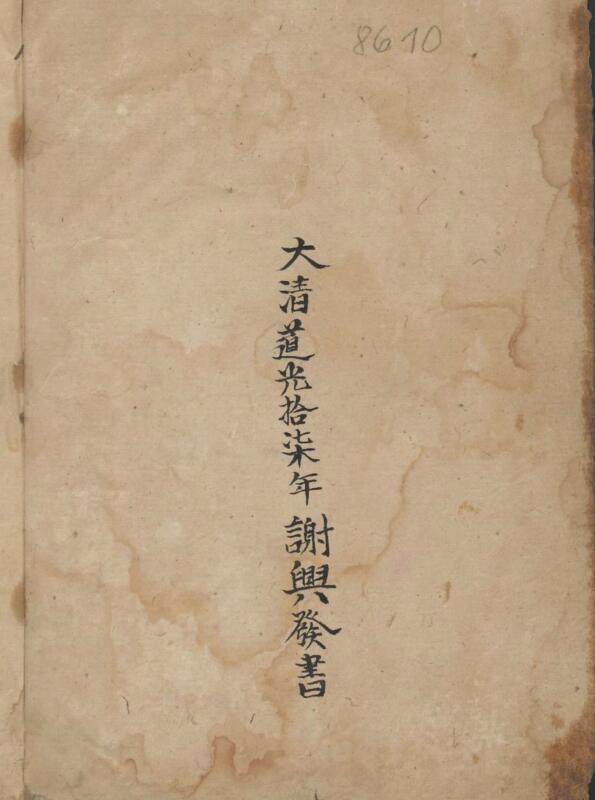 8610
大清道光拾柒年謝興發書